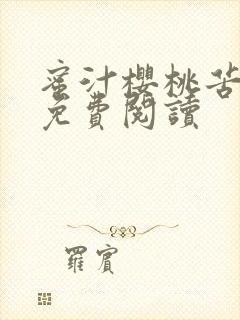 蜜汁櫻桃苦
免費閱讀
羅賓